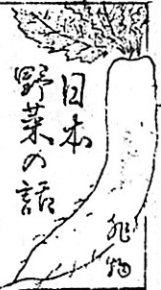 日本
野菜の話